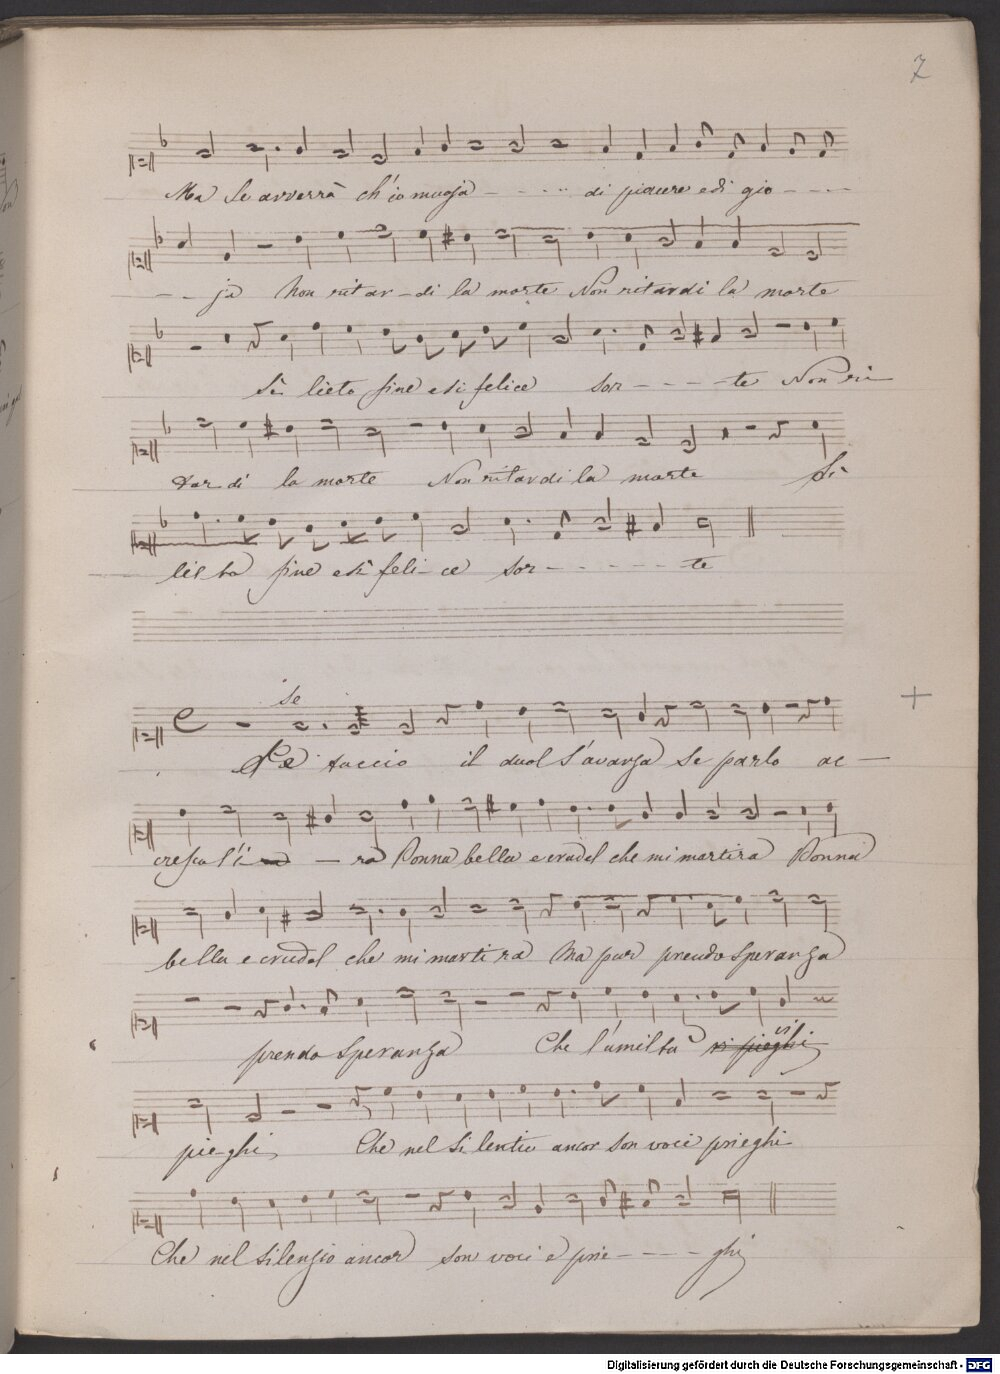 7
Ma Se avverrà ch'io muoja - - - - - di piacere e di gio - - - -
- - ja Non ritar - di la morte Non ritardi la morte
Sì lieto fine e sì felice sor - - - - te Non ri -
tar di la morte Non ritardi la morte Sì
lieto fine e sì feli - ce sor - - - - - - te
se
Se taccio il duol s'avanza Se parlo ac -
cresco l'i - ra Donna bella e crudel che mi martira Donna
bella e crudel che mi martira Ma pur prendo Speranza
prendo Speranza Che l'umiltà vi pieghi vi
pieghi Che nel Silentio ancor son voci prieghi
Che nel Silenzio ancor son voci e prie - - - - ghi
Digitalisierung gefördert durch die Deutsche Forschungsgemeinschaft - DFG